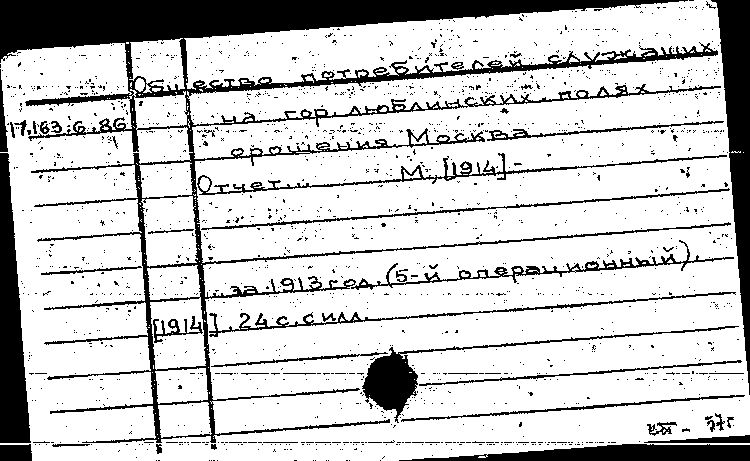 Общество потребителей служащих
17.163.6.86 на гор. люблинских полях
орошения. Москва
Отчет... М., [1914]-
...за 1913 год. (5-й операционный).
[1914]. 24 с. с илл.